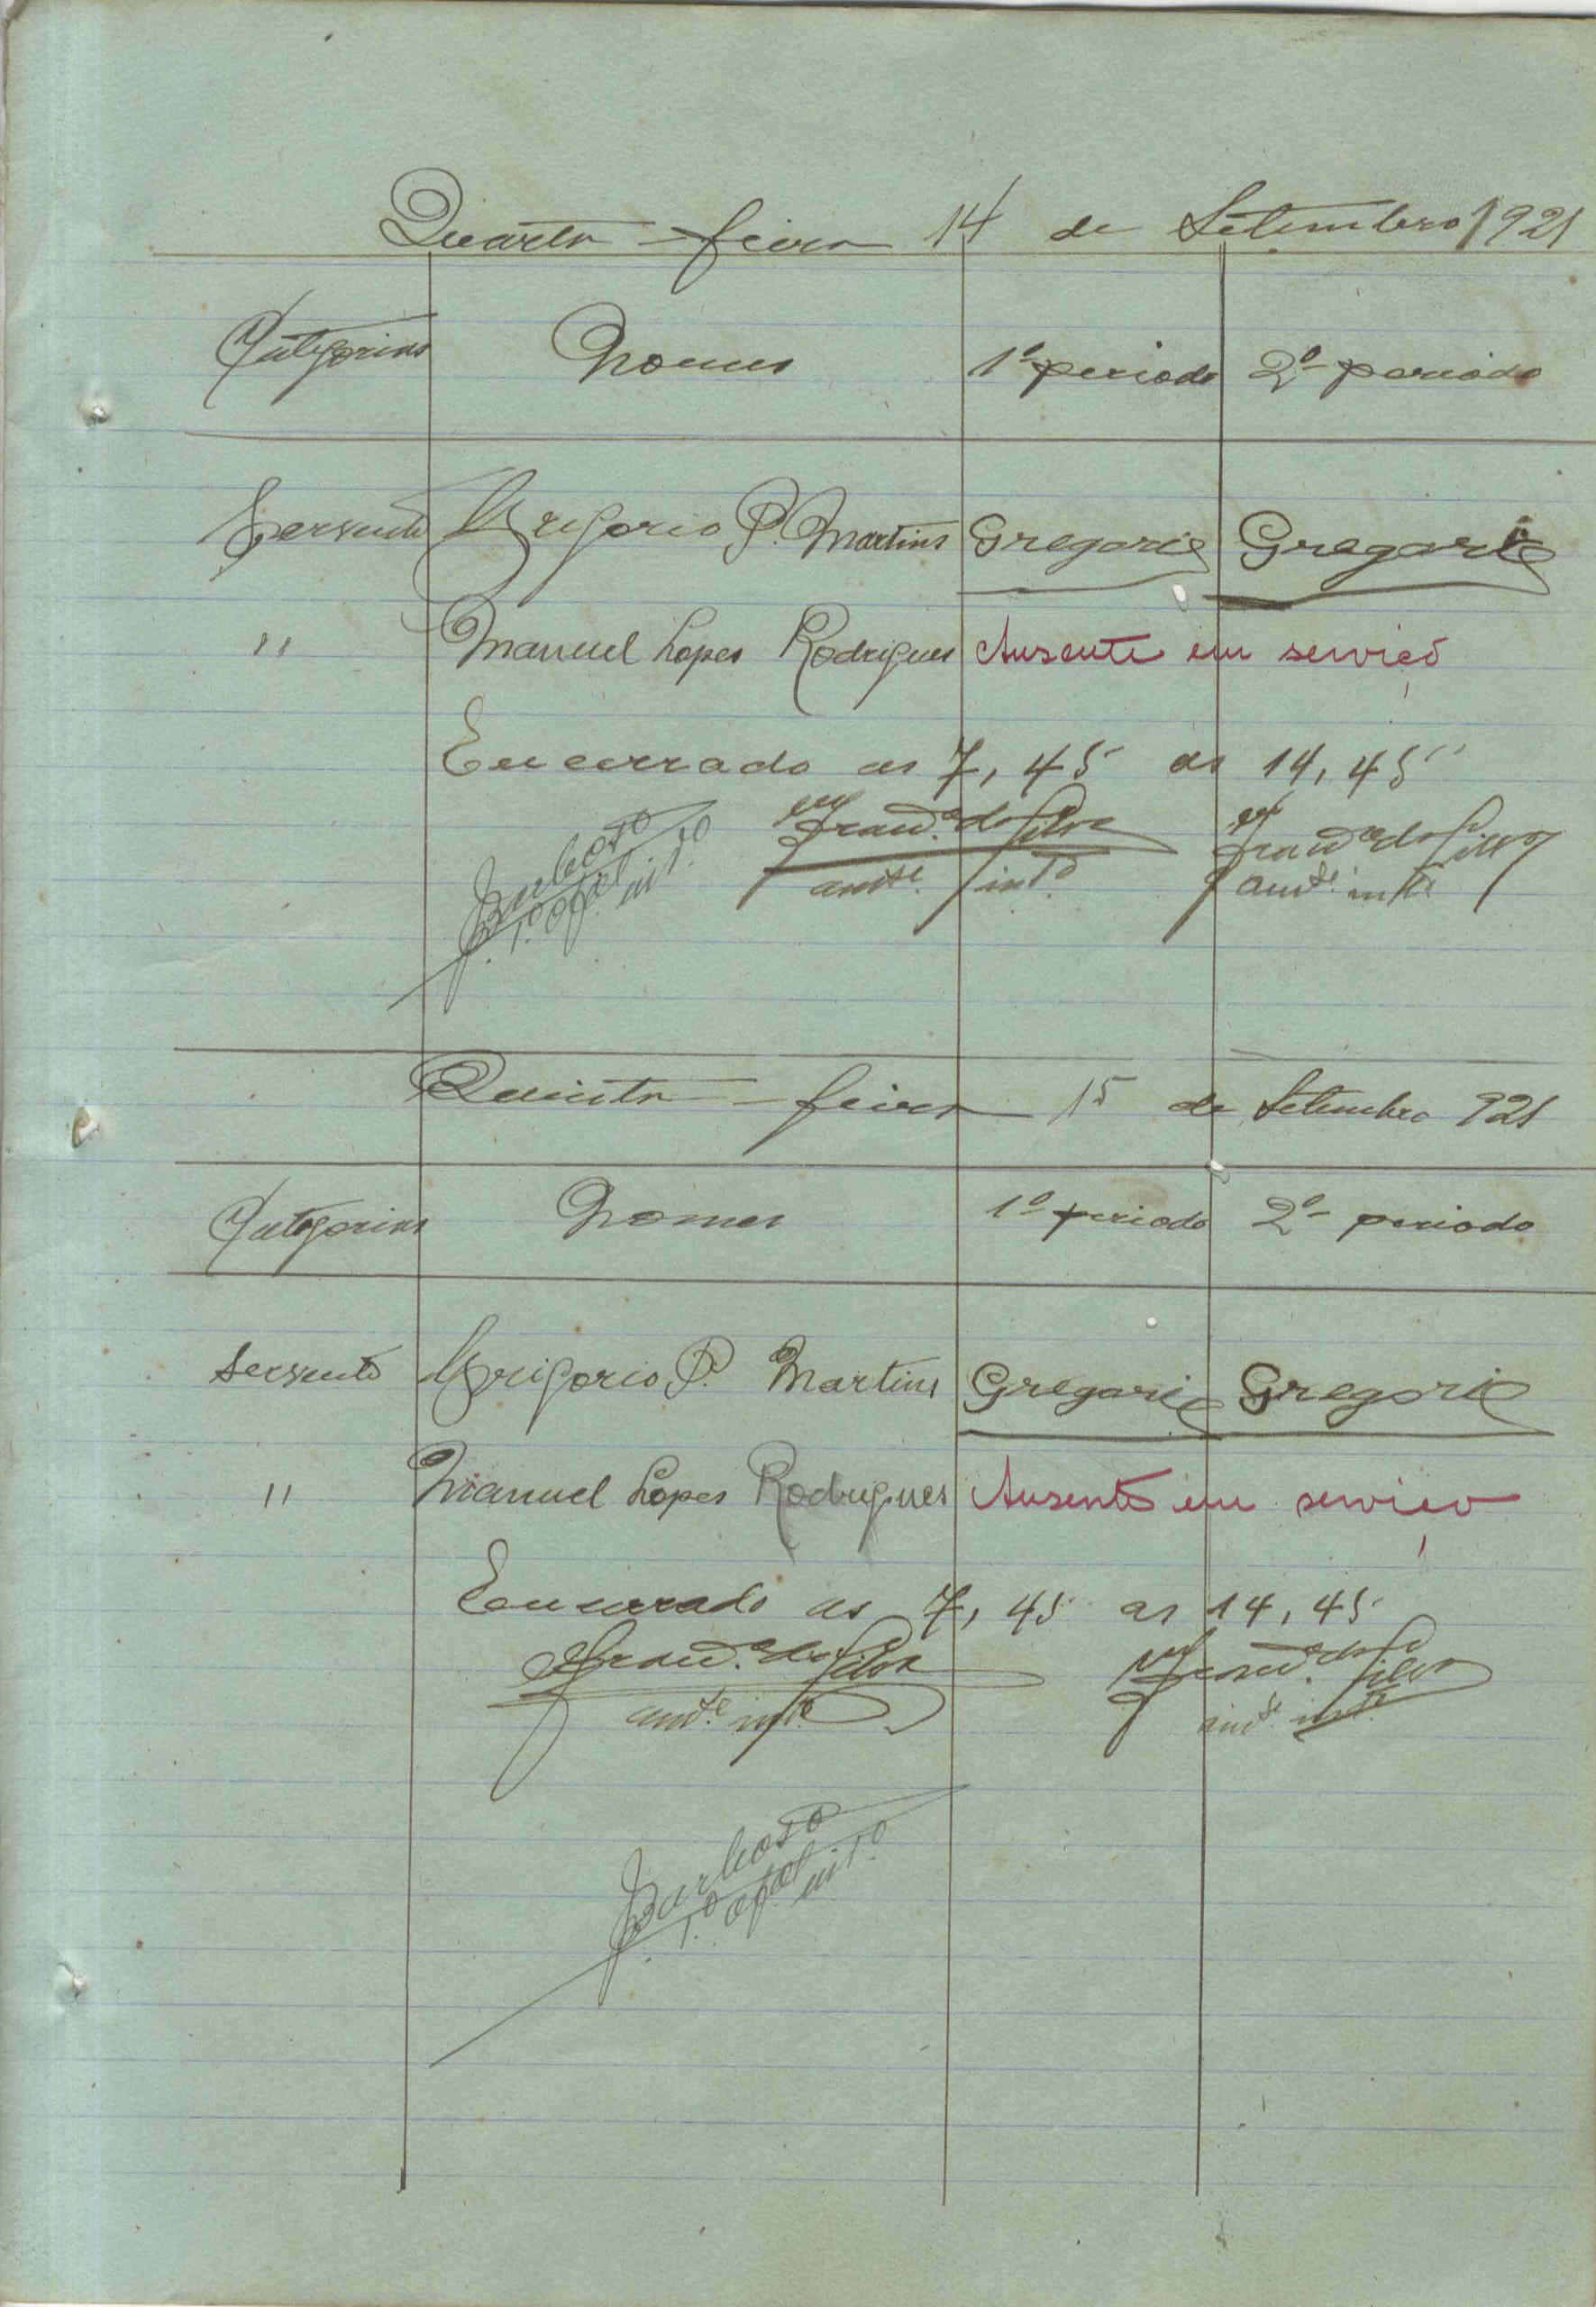 Quarta-feira 14 de Setembro 1921
Categorias Nomes 1º periodo 2º periodo
Servente Gregorio P. Martins Gregorio Gregorio
" Manuel Lopes Rodrigues Ausente em serviço
Encerrado as 7,45 as 14,45
Barbosa
1º ofal intº
Franco da Silva
amte intº
Franco da Silva
amte intº
Quinta-feira 15 de Setembro 921
Categorias Nomes 1º periodo 2º periodo
Servente Gregorio P. Martins Gregorio Gregorio
" Manuel Lopes Rodrigues Ausente em serviço
Encerrado as 7,45 as 14,45
Silva
amte intº
Silva
amte intº
Barbosa
1º ofal intº